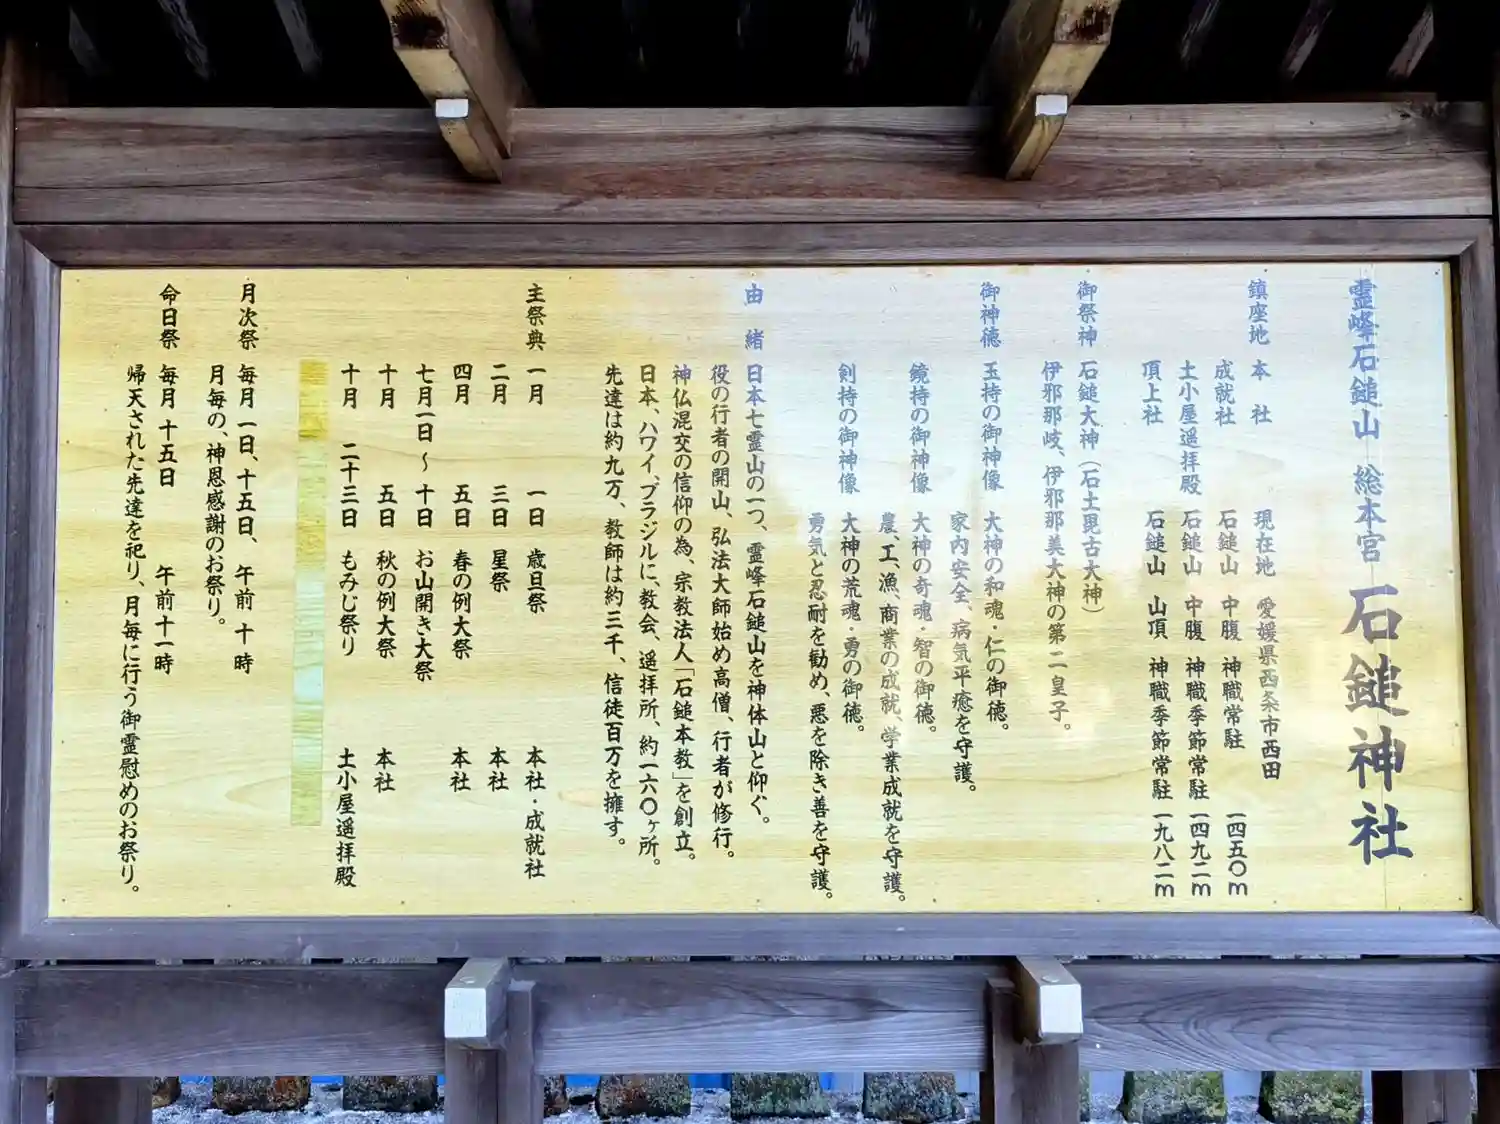 霊峰石鎚山 総本宮 石鎚神社
鎮座地 本 社 現在地 愛媛県西条市西田
成就社 石鎚山 中腹 神職常駐 一四五〇m
土小屋遥拝殿 石鎚山 中腹 神職季節常駐 一四九二m
頂上社 石鎚山 山頂 神職季節常駐 一九八二m
御祭神 石鎚大神（石土毘古大神）
伊邪那岐、伊邪那美大神の第二皇子。
御神徳 玉持の御神像 大神の和魂・仁の御徳。
家内安全、病気平癒を守護。
鏡持の御神像 大神の奇魂・智の御徳。
農、工、漁、商業の成就、学業成就を守護。
剣持の御神像 大神の荒魂・勇の御徳。
勇気と忍耐を勧め、悪を除き善を守護。
由 緒 日本七霊山の一つ、霊峰石鎚山を神体山と仰ぐ。
役の行者の開山、弘法大師始め高僧、行者が修行。
神仏混交の信仰の為、宗教法人「石鎚本教」を創立。
日本、ハワイ、ブラジルに、教会、遥拝所、約一六〇ヶ所。
先達は約九万、教師は約三千、信徒百万を擁す。
主祭典 一月 一日 歳旦祭 本社・成就社
二月 三日 星祭 本社
四月 五日 春の例大祭 本社
七月一日～十日 お山開き大祭
十月 五日 秋の例大祭 本社
十月 二十三日 もみじ祭り 土小屋遥拝殿
月次祭 毎月 一日、十五日、 午前 十時
月毎の、神恩感謝のお祭り。
命日祭 毎月 十五日 午前十一時
帰天された先達を祀り、月毎に行う御霊慰めのお祭り。